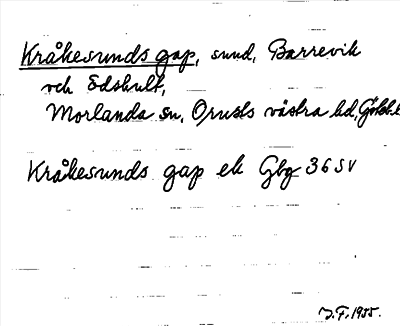 Kråkesunds gap, sund, Barrevik
och Edshult,
Morlanda sn, Orusts västra hd, Götebl.
Kråkesunds gap ek Gbg 36 SV
J.F. 1955.